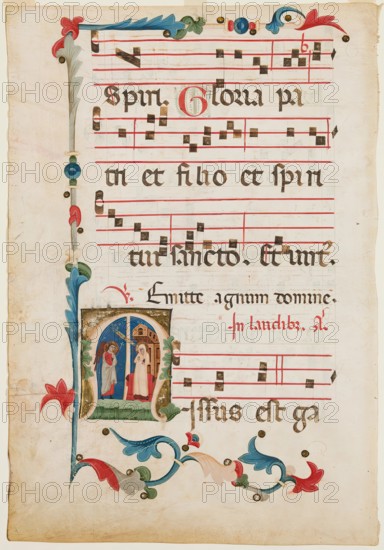 Spiri. Gloria pa
tri et filio et spiri
tui sancto. Et virt.
V. Emitte agnum domine.
In laudibz. A.
Missus est ga